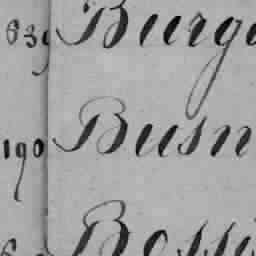 639 Burg
190 Busn
Bossi